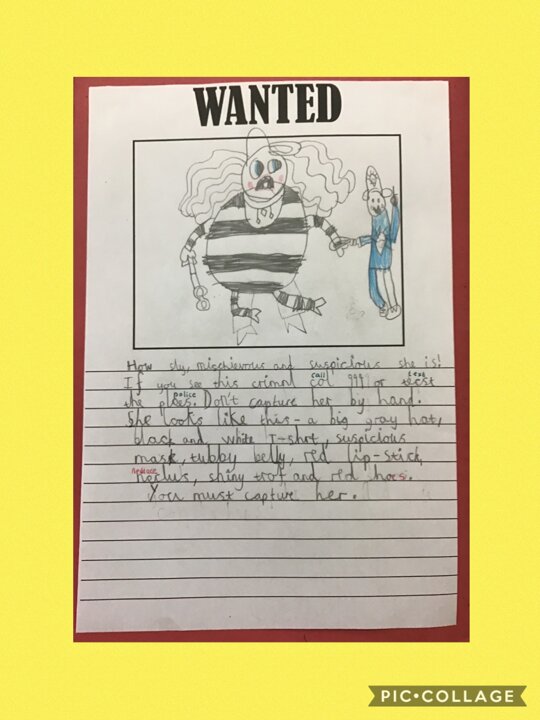 WANTED
How sly, mischievous and suspicious she is!
call text
If you see this crimnl col 999 or test
police
the ploes. Don't capture her by hand.
She looks like this - a big gray hat,
black and white T-shrt, suspicious
mask, tubby belly, red lip-stick,
necklace
neclus, shiny trof and red shoes.
You must capture her.
PIC•COLLAGE